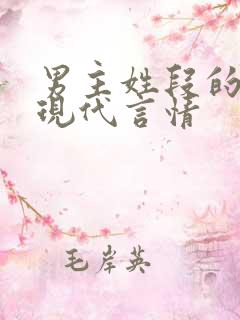 男主姓段的
現代言情
毛岸英